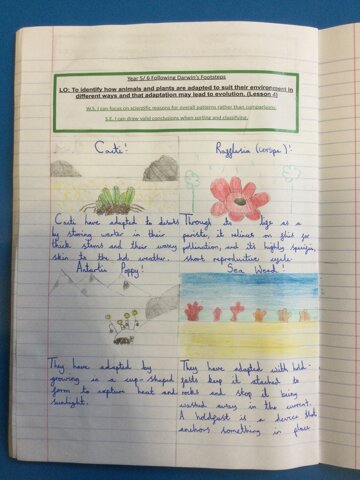 Year 5/ 6 Following Darwin's Footsteps
LO: To identify how animals and plants are adapted to suit their environment in
different ways and that adaptation may lead to evolution. (Lesson 4)
W.S. I can focus on scientific reasons for overall patterns rather than comparisons.
S.E. I can draw valid conclusions when sorting and classifying.
Cacti!
Cacti have adapted to deserts
by storing water in their
thick stems and their waxy
skin to the hot weather.
Rafflesia (corspe)!
Through to life as a
parisite, it relinces on flies for
pollination, and its highly specific,
short reproductive cycle.
Antartic Poppy!
They have adapted by
growing in a cup-shaped
form to capture heat and
sunlight.
Sea Weed!
They have adapted with hold-
fasts keep it attached to
rocks and stop it being
washed away in the current.
A holdfast is a device that
anchors something in place